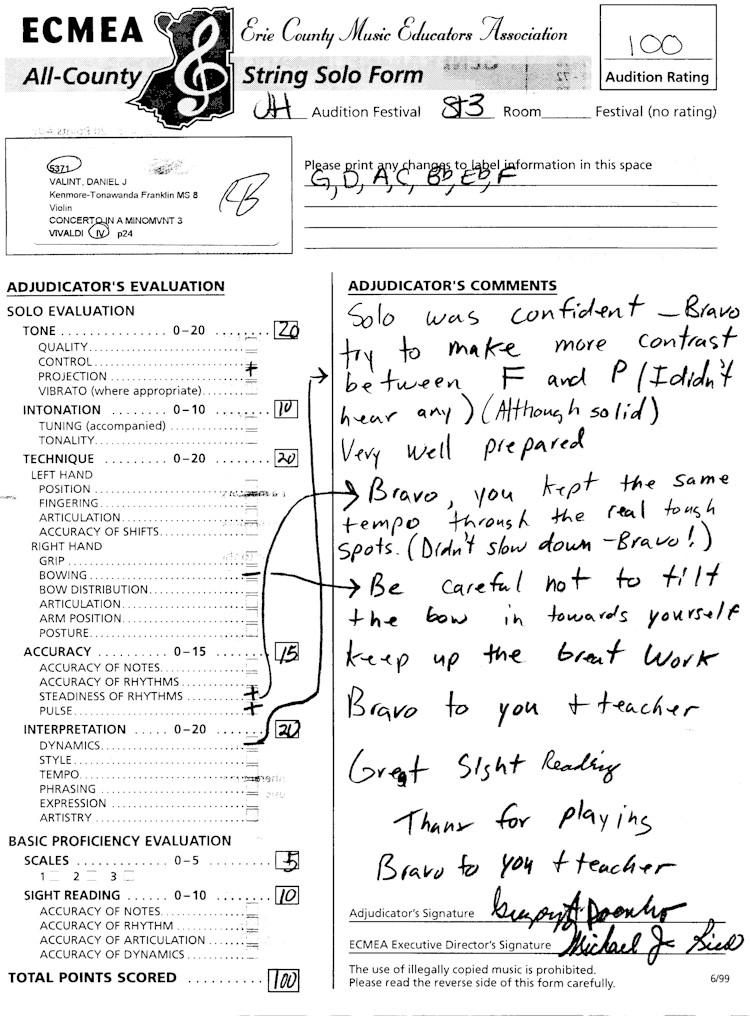 ECMEA Erie County Music Educators Association
100
Audition Rating
All-County String Solo Form
JH Audition Festival 8t3 Room Festival (no rating)
5371
VALINT, DANIEL J
Kenmore-Tonawanda Franklin MS 8
Violin
CONCERTO IN A MINOMVNT 3
VIVALDI IV p24
Please print any changes to label information in this space
G, D, A, C, Bb, Eb, F
ADJUDICATOR'S EVALUATION
SOLO EVALUATION
TONE ............... 0–20 ........ 20
QUALITY
CONTROL
PROJECTION +
VIBRATO (where appropriate)
INTONATION ........ 0–10 ........ 10
TUNING (accompanied)
TONALITY
TECHNIQUE ........ 0–20 ........ 20
LEFT HAND
POSITION
FINGERING
ARTICULATION
ACCURACY OF SHIFTS
RIGHT HAND
GRIP
BOWING –
BOW DISTRIBUTION
ARTICULATION
ARM POSITION
POSTURE
ACCURACY ........ 0–15 ........ 15
ACCURACY OF NOTES
ACCURACY OF RHYTHMS
STEADINESS OF RHYTHMS +
PULSE +
INTERPRETATION ..... 0–20 ........ 20
DYNAMICS –
STYLE
TEMPO
PHRASING
EXPRESSION
ARTISTRY
BASIC PROFICIENCY EVALUATION
SCALES ............. 0–5 ......... 5
1 2 3
SIGHT READING ...... 0–10 ........ 10
ACCURACY OF NOTES
ACCURACY OF RHYTHM
ACCURACY OF ARTICULATION
ACCURACY OF DYNAMICS
TOTAL POINTS SCORED .......... 100
ADJUDICATOR'S COMMENTS
Solo was confident – Bravo
try to make more contrast
between F and P (I didn't
hear any) (Although solid)
Very well prepared
Bravo, you kept the same
tempo through the real tough
spots. (Didn't slow down – Bravo!)
Be careful not to tilt
the bow in towards yourself
keep up the Great Work
Bravo to you + teacher
Great Sight Reading
Thanx for playing
Bravo to you + teacher
Adjudicator's Signature
ECMEA Executive Director's Signature Michael J.
The use of illegally copied music is prohibited.
Please read the reverse side of this form carefully.
6/99